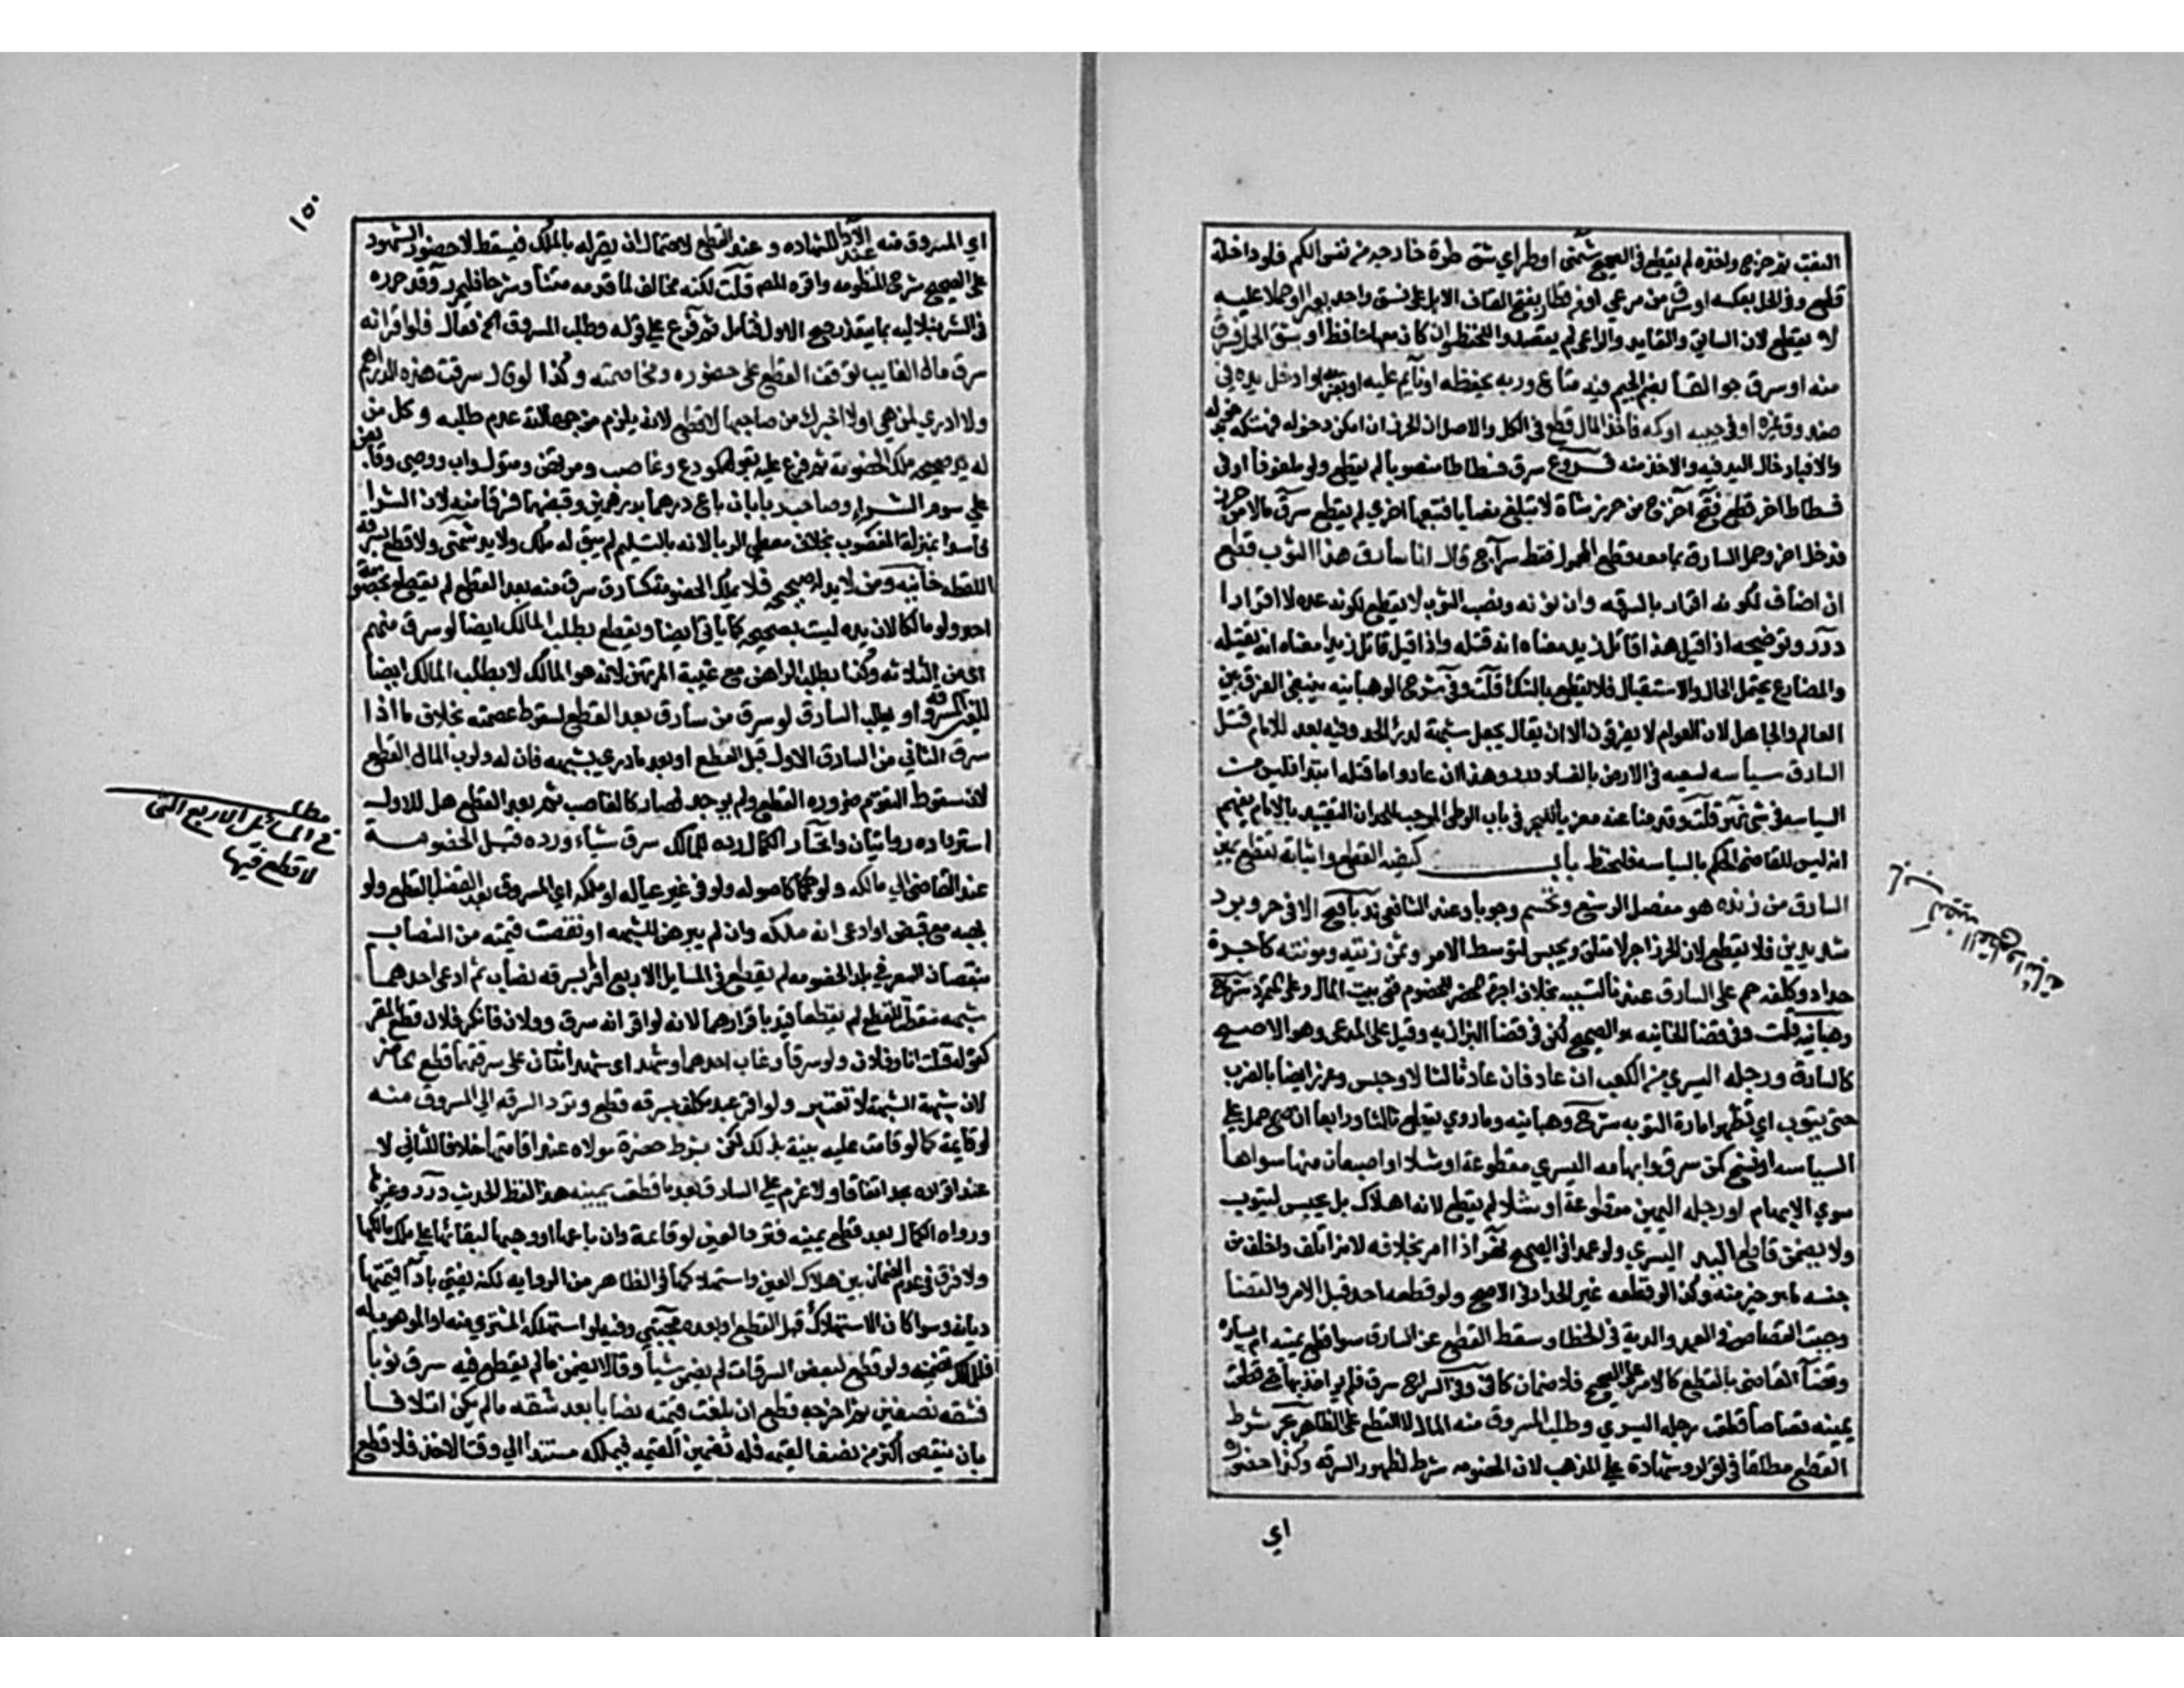 النقب ثم خرج واخذه لم يقطع في الصحيح شمني او طر اي شق طرة خارجة من نفس الكم فلو داخله
قطع وفي الحل بعكسه او سرق من مرعى او من قطار بفتح القاف الابل على نسق واحد بعيرا او حملا عليه
لا يقطع لان السايق والقايد والراعي لم يقصدوا للحفظ وان كان معها حافظ او شق الحمل فسرق
منه او سرق جوالقا بضم الجيم فيه متاع وربه يحفظه او نايم عليه او بقربه او ادخل يده في
صندوق غيره او في جيبه او كمه فاخذ المال قطع في الكل والاصل ان الحرز ان امكن دخوله فهتكه بدخوله
والا فبادخال اليد فيه والاخذ منه فروع سرق فسطاطا منصوبا لم يقطع ولو ملفوفا او في
فسطاط اخر قطع فتح اخرج من حرز شاة لا تبلغ نصابا فتبعها اخرى لم يقطع سرق مالا من حرز
فدخل اخر وحمل السارق بما معه قطع المحمول فقط سراج قال انا سارق هذا الثوب قطع
ان اضاف لكونه اقرار بالسرقه وان نونه ونصب الثوب لا يقطع لكونه عدة لا اقرارا
درر وتوضيحه اذا قيل هذا قاتل زيد معناه انه قتله واذا قيل قاتل زيدا معناه انه يقتله
والمضارع يحتمل الحال والاستقبال فلا يقطع بالشك قلت وفي شرح الوهبانيه ينبغي الفرق بين
العالم والجاهل لان العوام لا يفرقون الا ان يقال يجعل شبهة لدرء الحد وفيه بعد للامام قتل
السارق سياسه لسعيه في الارض بالفساد درر وهذا ان عاد واما قتله ابتدا فليس من
السياسه في شي نهر قلت وقدمنا عنه معزيا للبحر في باب الوطي الموجب للحد ان التقييد بالامام يفهم
انه ليس للقاضي الحكم بالسياسه فليحفظ باب كيفية القطع واثباته تقطع يمين
السارق من زنده هو مفصل الرسغ وتحسم وجوبا وعند الشافعي ندبا فتح الا في حر وبرد
شديدين فلا يقطع لان الحد زاجر لا متلف ويحبس ليتوسط الامر وثمن زيته ومونته كاجرة
حداد وكلفة حسم على السارق عندنا لتسببه بخلاف اجرة محضر الخصوم ففي بيت المال وقيل على المتمرد شرح
وهبانيه قلت وفي قضا الخانيه هو الصحيح لكن في قضا البزازيه وقيل على المدعي وهو الاصح
كالسارق ورجله اليسرى من الكعب ان عاد فان عاد ثالثا لا وحبس وعزر ايضا بالضرب
حتى يتوب اي تظهر امارة التوبه شرح وهبانيه وما روي يقطع ثالثا ورابعا ان صح حمل على
السياسه او نسخ كمن سرق وابهامه اليسرى مقطوعة او شلا او اصبعان منها سواها
سوى الابهام او رجله اليمين مقطوعة او شلا لم يقطع لانه اهلاك بل يحبس ليتوب
ولا يضمن قاطع اليد اليسرى ولو عمدا في الصحيح نهر اذا امر بخلافه لانه اتلف واخلف من
جنسه ما هو خير منه وكذا لو قطعه غير الحداد في الاصح ولو قطعه احد قبل الامر والقضا
وجب القصاص في العمد والدية في الخطا وسقط القطع عن السارق سوا قطع يمينه ام يساره
وقضا القاضي بالقطع كالامر على الصحيح فلا ضمان كافي وفي السراج سرق فلم يواخذ بها حتى قطعت
يمينه قصاصا قطعت رجله اليسرى وطلب المسروق منه المال لا القطع على الظاهر بحر شرط
القطع مطلقا في اقرار وشهادة على المذهب لان الخصومه شرط لظهور السرقه وكذا حضوره
اي
كيفية القطع واثباته
١٥٠
اي المسروق منه عند الاداء للشهاده وعند القطع لاحتمال ان يقر له بالملك فيسقط لا حضور الشهود
على الصحيح شرح المنظومه واقره المص قلت لكنه مخالف لما قدمه متنا وشرحا فليحرر وقد حرره
في الشرنبلاليه بما يفيد ترجيح الاول فتامل ثم فرع على قوله وطلب المسروق الخ فقال فلو اقر انه
سرق مال الغايب توقف القطع على حضوره ومخاصمته وكذا لو قال سرقت هذه الدراهم
ولا ادري لمن هي او لا اخبرك من صاحبها لا قطع لانه يلزم من جهالته عدم طلبه وكل من
له يد صحيحه ملك الخصومة ثم فرع عليه بقوله كمودع وغاصب ومرتهن ومتول واب ووصي وقابض
على سوم الشراء وصاحب ربا بان باع درهما بدرهمين وقبضهما فسرقا منه لان الشرا
فاسدا بمنزلة المغصوب بخلاف معطي الربا لانه بالتسليم لم يبق له ملك ولا يد شمني ولا قطع بسرقة
اللقطه خانيه ومن لا يد له صحيحه فلا يملك الخصومة كسارق سرق منه بعد القطع لم يقطع بخصومة
احد ولو مالكا لان يده ليست بصحيحه كما ياتي ايضا ويقطع بطلب المالك ايضا لو سرق منهم
اي من الثلاثه وكذا بطلب الراهن مع غيبة المرتهن لانه هو المالك لا بطلب المالك ايضا
للعين المسروقة او بطلب السارق لو سرق من سارق بعد القطع لسقوط عصمته بخلاف ما اذا
سرق الثاني من السارق الاول قبل القطع او بعد ما دري بشبهه فان له ولرب المال القطع
لان سقوط التقوم ضرورة القطع ولم يوجد فصار كالغاصب ثم بعد القطع هل للاول
استرداده روايتان واختار الكمال رده للمالك سرق شيا ورده قبل الخصومة
عند القاضي الى مالكه ولو حكما كاصوله ولو في غير عياله او ملكه اي المسروق بعد القضا بالقطع ولو
بهبه مع قبض او ادعى انه ملكه وان لم يبرهن للشبهه او نقصت قيمته من النصاب
بنقصان السعر في بلد الخصومه لم يقطع في المسايل الاربع اقرا بسرقه نصاب ثم ادعى احدهما
شبهه مسقطة للقطع لم يقطعا قيد باقرارهما لانه لو اقر انه سرق وفلان فانكر فلان قطع المقر
كقوله قتلت انا وفلان ولو سرقا وغاب احدهما وشهد اي شهد اثنان على سرقتهما قطع الحاضر
لان شبهة الشبهة لا تعتبر ولو اقر عبد مكلف بسرقه قطع وترد السرقه الى المسروق منه
لو قايمة كما لو قامت عليه بينة بذلك لكن بشرط حضرة مولاه عند اقامتها خلافا للثاني لا
عند اقراره بحد اتفاقا ولا غرم على السارق بعد ما قطعت يمينه هذا لفظ الحديث درر وغيرها
ورواه الكمال بعد قطع يمينه فترد العين لو قايمة وان باعها او وهبها لبقائها على ملك مالكها
ولا فرق في عدم الضمان بين هلاك العين واستهلاكها في الظاهر من الروايه لكنه يفتى باداء قيمتها
ديانة وسوا كان الاستهلاك قبل القطع او بعده مجتبى وفيه لو استهلكه المشتري منه او الموهوب له
فللمالك تضمينه ولو قطع لبعض السرقات لم يضمن شيا وقالا يضمن ما لم يقطع فيه سرق ثوبا
فشقه نصفين ثم اخرجه قطع ان بلغت قيمته نصابا بعد شقه ما لم يكن اتلافا
بان ينقص اكثر من نصف القيمه فله تضمين القيمه فيملكه مستندا الى وقت الاخذ فلا قطع
مطلب
في المسائل الاربع التي
لا قطع فيها